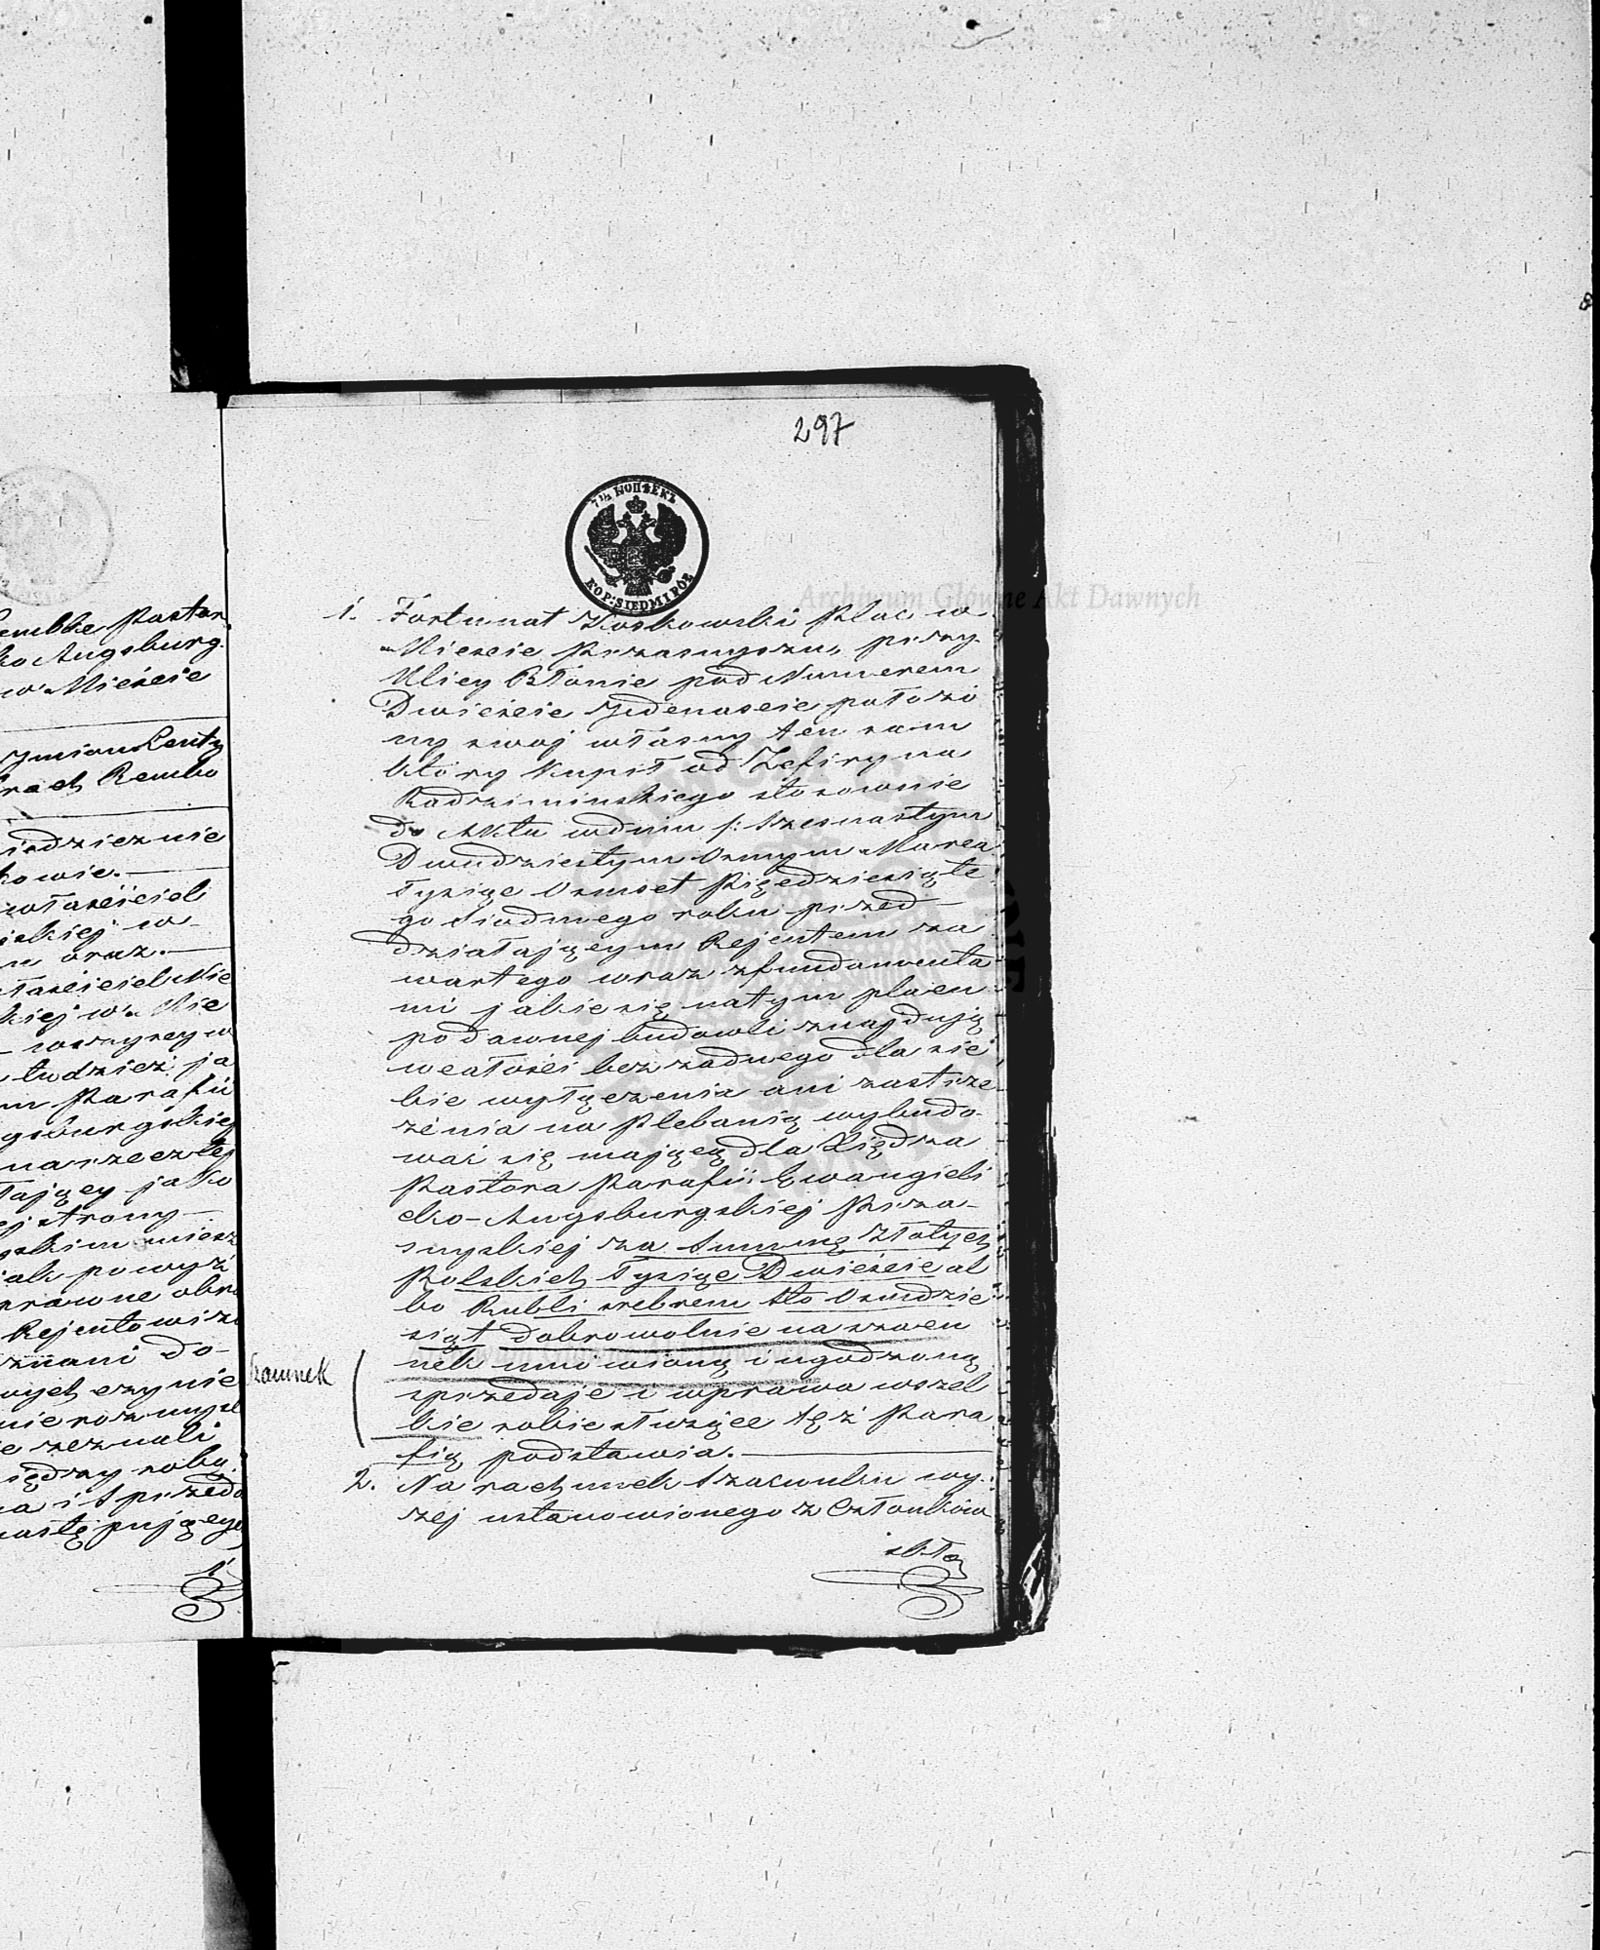 297
7½ КОПѢЕКЪ
KOP: SIEDM I PÓŁ
Archiwum Główne Akt Dawnych
1. Fortunat Koskowski Plac w
Mieście Przasnyszu, przy
Ulicy Błonie pod Numerem
Dwieście Jedenaście położo
ny swój własny ten sam
który kupił od Zefiryna
Radzimińskiego stosownie
do Aktu wdniu /: Szesnastym
Dwudziestym Osmym Marca
tysiąc Osmset Pięćdziesiąte
go Siódmego roku przed
działającym Rejentem za
wartego wraz zfundamenta
mi jakie się natym placu
po dawnej budowli znajdują
wcałości bez żadnego dla sie
bie wyłączenia ani zastrze
żenia na Plebanią wybudo-
wać się mającą dla Xiędza
Pastora Parafii Ewangieli
cko-Augsburgskiej Prza-
snyskiej za Summę Złotych
Polskich tysiąc Dwieście al
bo Rubli srebrem sto Osmdzie
siąt dobrowolnie na szacu
nek umówioną i ugodzoną
sprzedaje i wprawa wszel
kie sobie służące tęż Para
fią podstawia.
2. Na rachunek Szacunku wy-
żej ustanowionego z Członków
szacunek
embke Pastor
ko Augsburg.
w Mieście
Rembo
kowie.
właściciel
w-
oraz.
w Mie
tudzież ja
Parafii
gsburgskiej
na rzecz tej
jako
strony
jak powyż
prawne obra
Rejentowi
znani do-
czynie
zeznali
między sobą
i Sprzeda
następującego